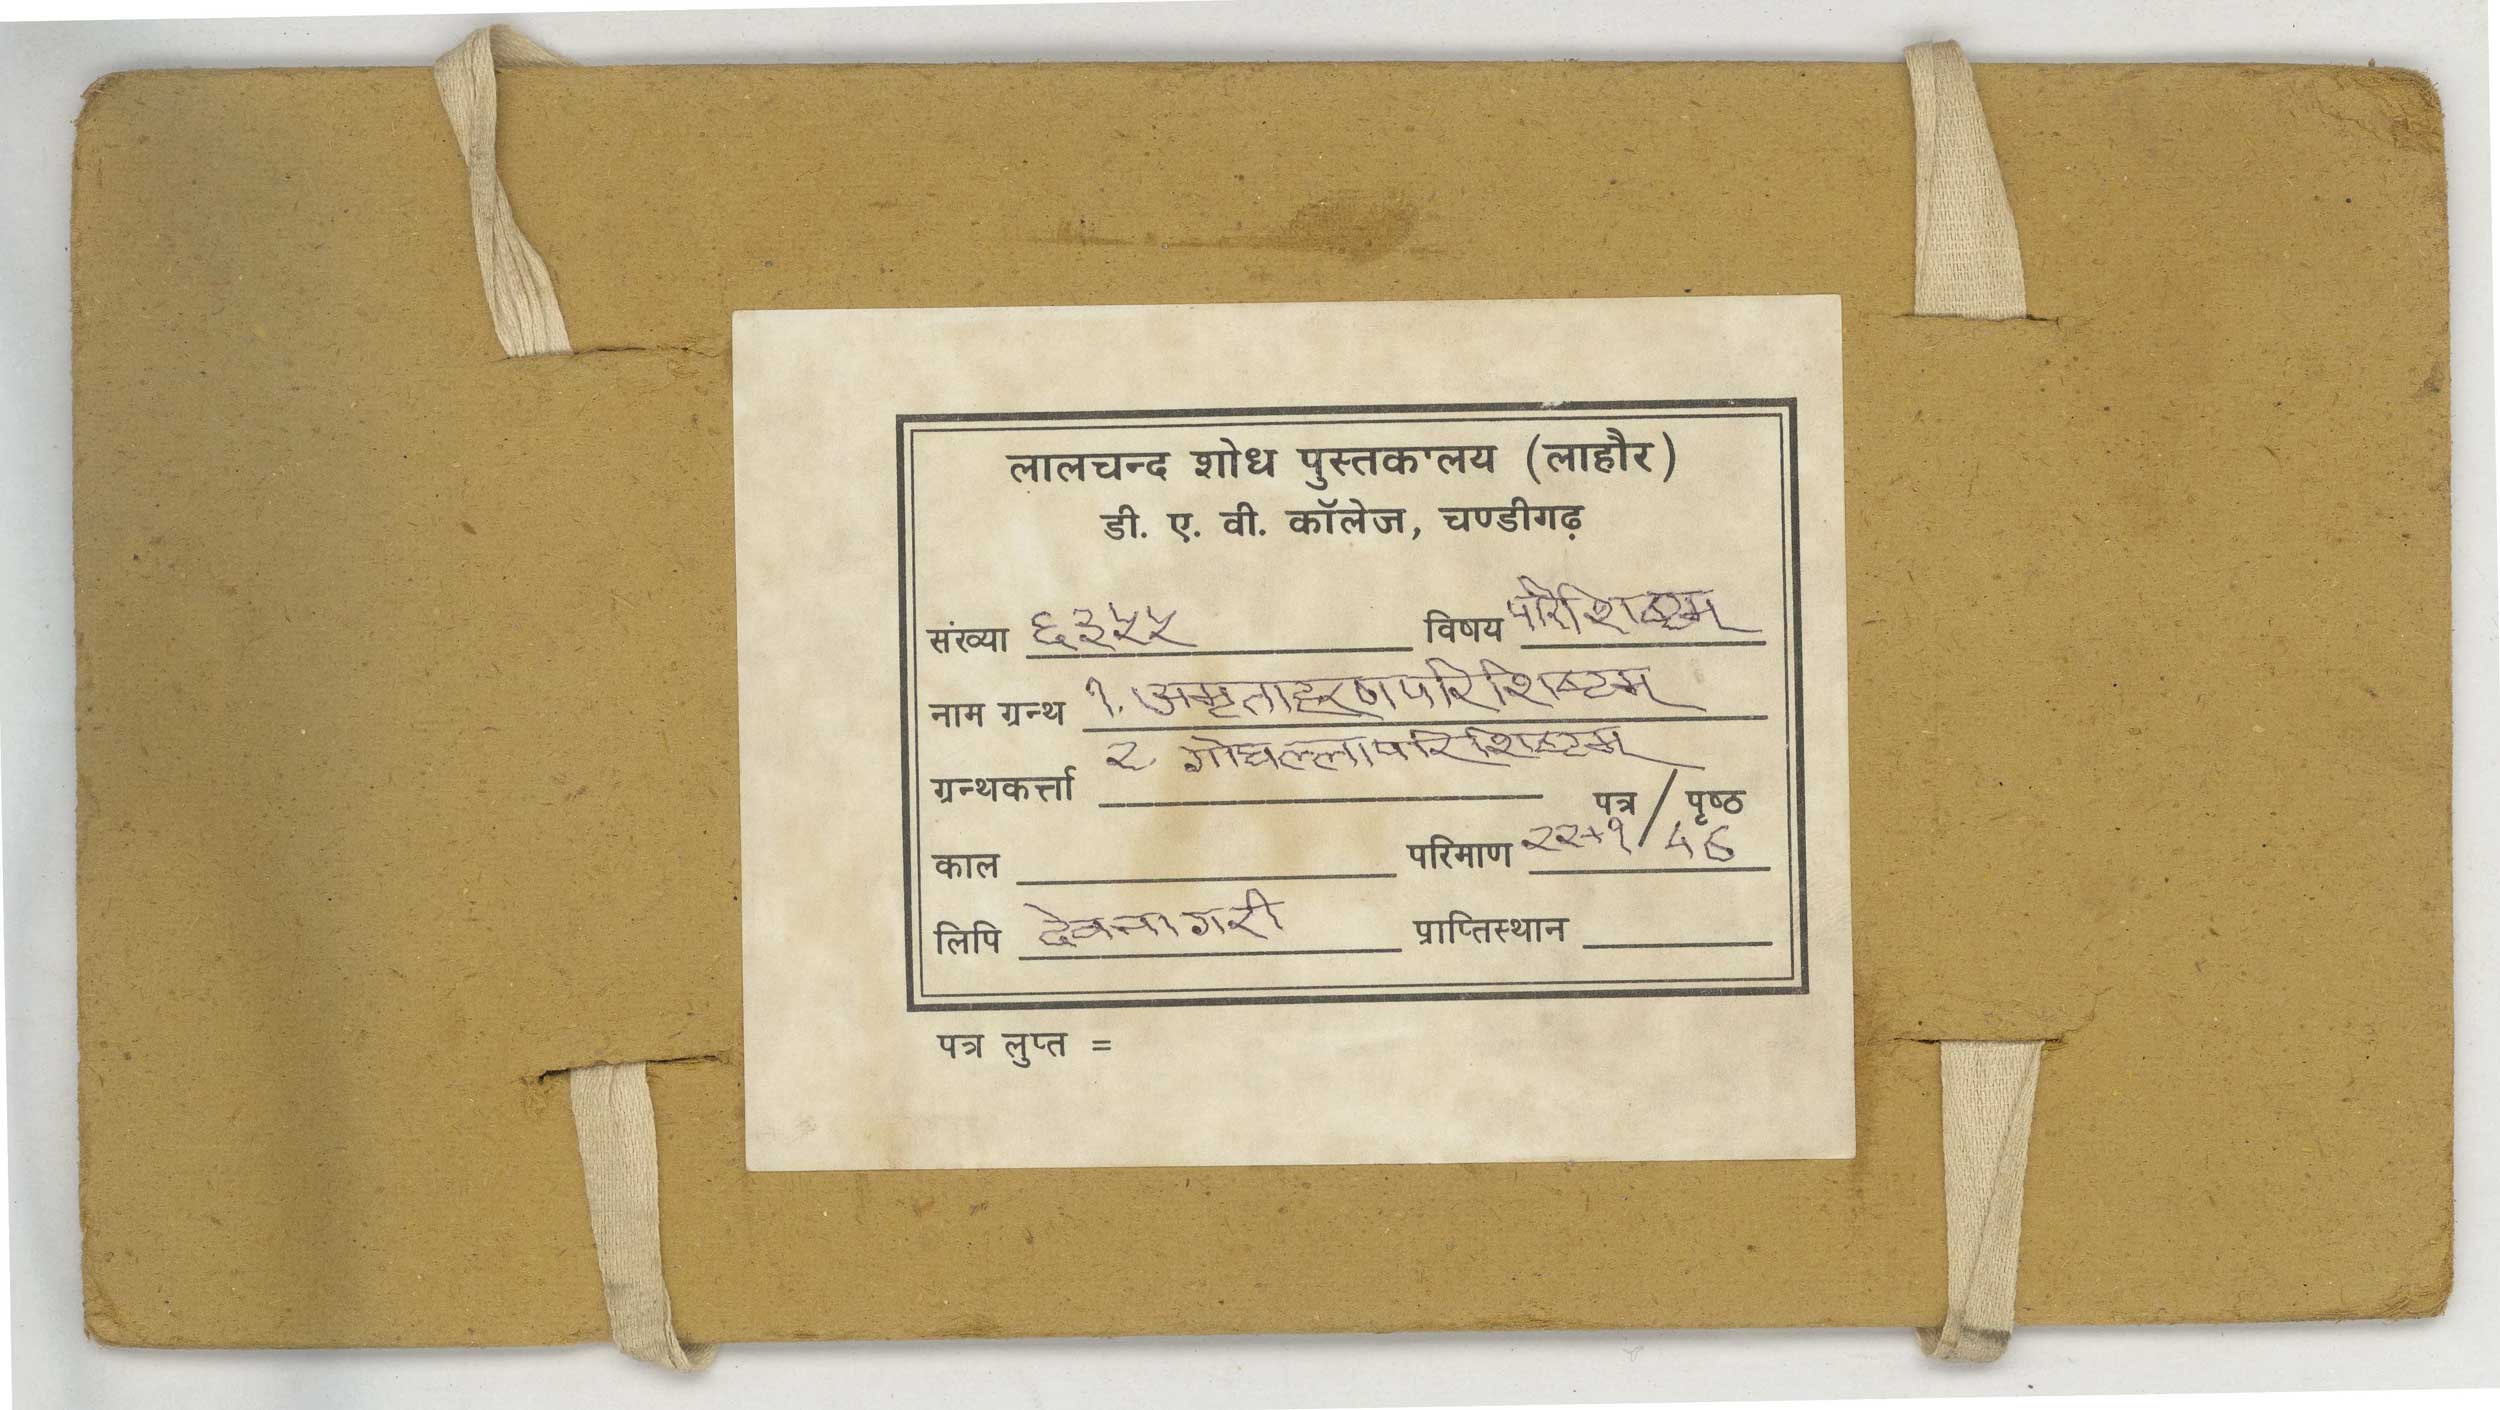 लालचन्द शोध पुस्तकालय (लाहौर)
डी. ए. वी. कॉलेज, चण्डीगढ़
संख्या ६३५५ विषय परिशिष्टम्
नाम ग्रन्थ १. अमृताहरणपरिशिष्टम्
२. गोघल्लापरिशिष्टम्
ग्रन्थकर्त्ता
पत्र / पृष्ठ
काल परिमाण २२+१ /
लिपि देवनागरी प्राप्तिस्थान
पत्र लुप्त =